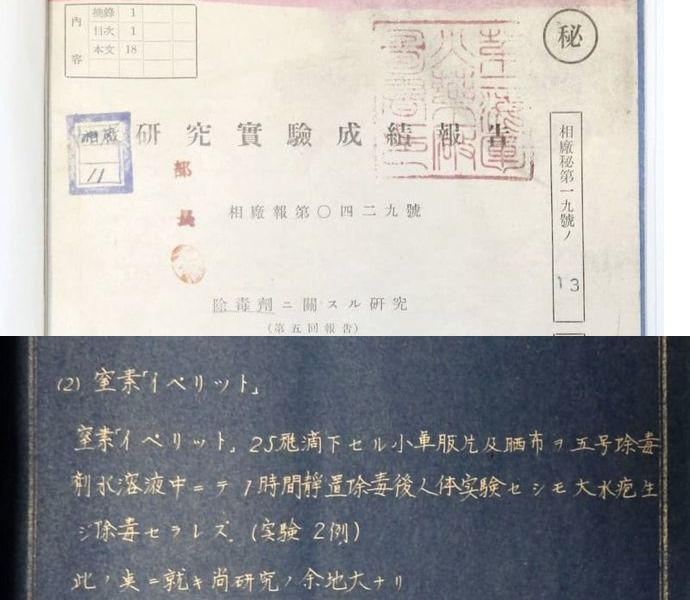 內容
摘錄 1
目次 1
本文 18
秘
研究實驗成績報告
相廠
11
部長
相廠報第〇四二九號
相廠秘第一九號ノ 13
除毒劑ニ關スル研究
(第五回報告)
(2) 窒素「イペリット」
窒素「イペリット」25瓱滴下セル小軍服片及晒布ヲ五号除毒
剤水溶液中ニテ1時間靜置除毒後人体実験セシモ大水疱生
ジ除毒セラレズ.(実験2例)
此ノ奌ニ就キ尚研究ノ余地大ナリ